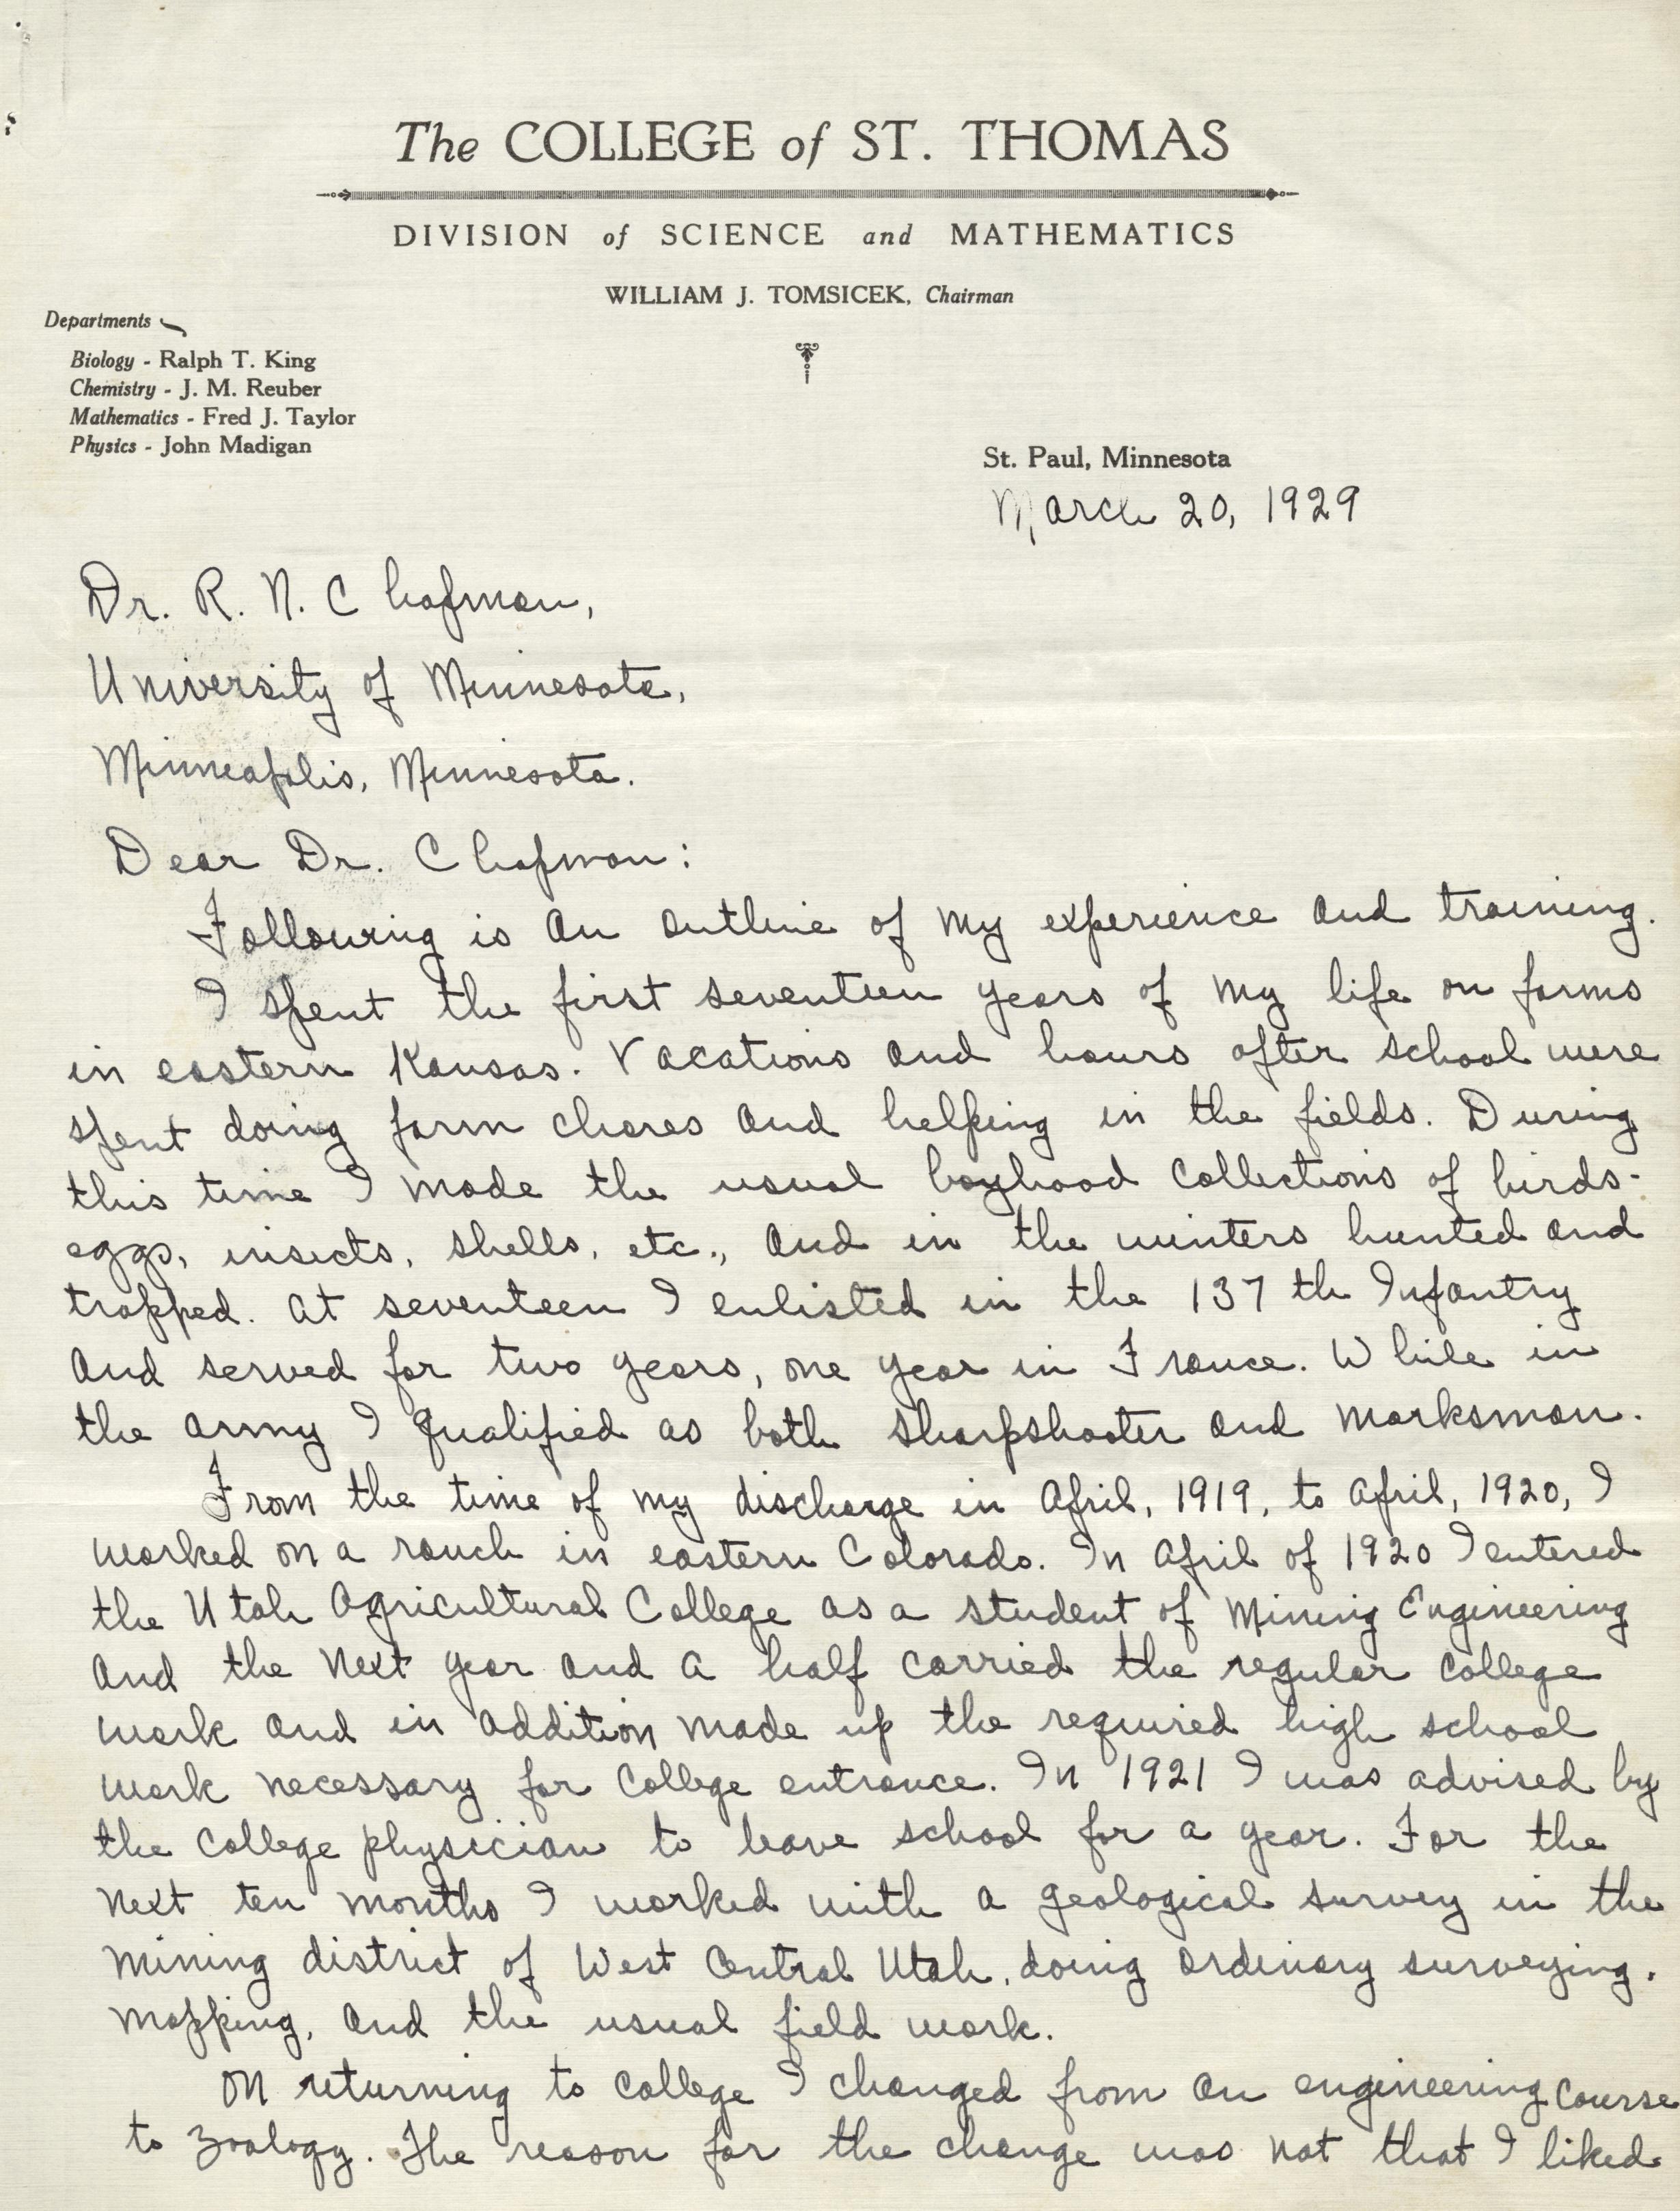 The COLLEGE of ST. THOMAS
DIVISION of SCIENCE and MATHEMATICS
WILLIAM J. TOMSICEK, Chairman
Departments
Biology - Ralph T. King
Chemistry - J. M. Reuber
Mathematics - Fred J. Taylor
Physics - John Madigan
St. Paul, Minnesota
March 20, 1929
Dr. R. N. Chapman,
University of Minnesota,
Minneapolis, Minnesota.
Dear Dr. Chapman:
Following is an outline of my experience and training.
I spent the first seventeen years of my life on farms
in eastern Kansas. Vacations and hours after school were
spent doing farm chores and helping in the fields. During
this time I made the usual boyhood collections of birds-
eggs, insects, shells, etc., and in the winters hunted and
trapped. At seventeen I enlisted in the 137th Infantry
and served for two years, one year in France. While in
the army I qualified as both sharpshooter and marksman.
From the time of my discharge in April, 1919, to April, 1920, I
worked on a ranch in eastern Colorado. In April of 1920 I entered
the Utah Agricultural College as a student of Mining Engineering
and the next year and a half carried the regular college
work and in addition made up the required high school
work necessary for college entrance. In 1921 I was advised by
the college physician to leave school for a year. For the
next ten months I worked with a geological survey in the
mining district of West Central Utah, doing ordinary surveying,
mapping, and the usual field work.
On returning to college I changed from an engineering course
to zoology. The reason for the change was not that I liked